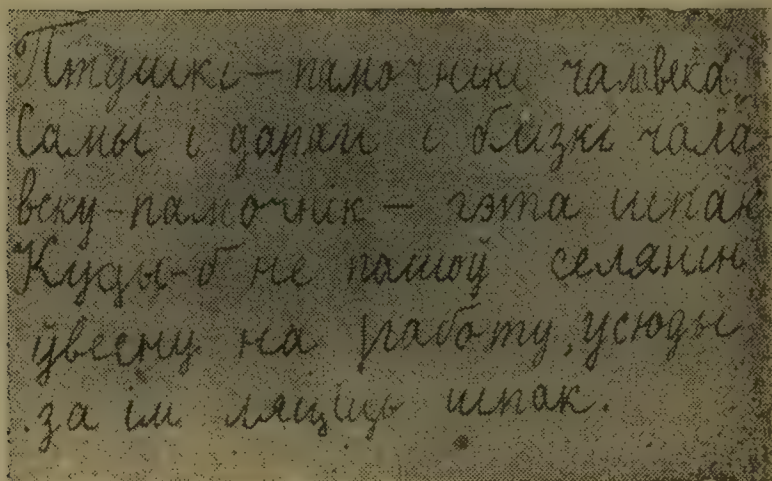 Птушкі — памочнікі чалавека.
Самы і дарагі і блізкі чала-
веку-памочнік — гэта шпак
Куды-б не пашоў селянін
ўвесну на работу, усюды
за ім ляціць шпак.